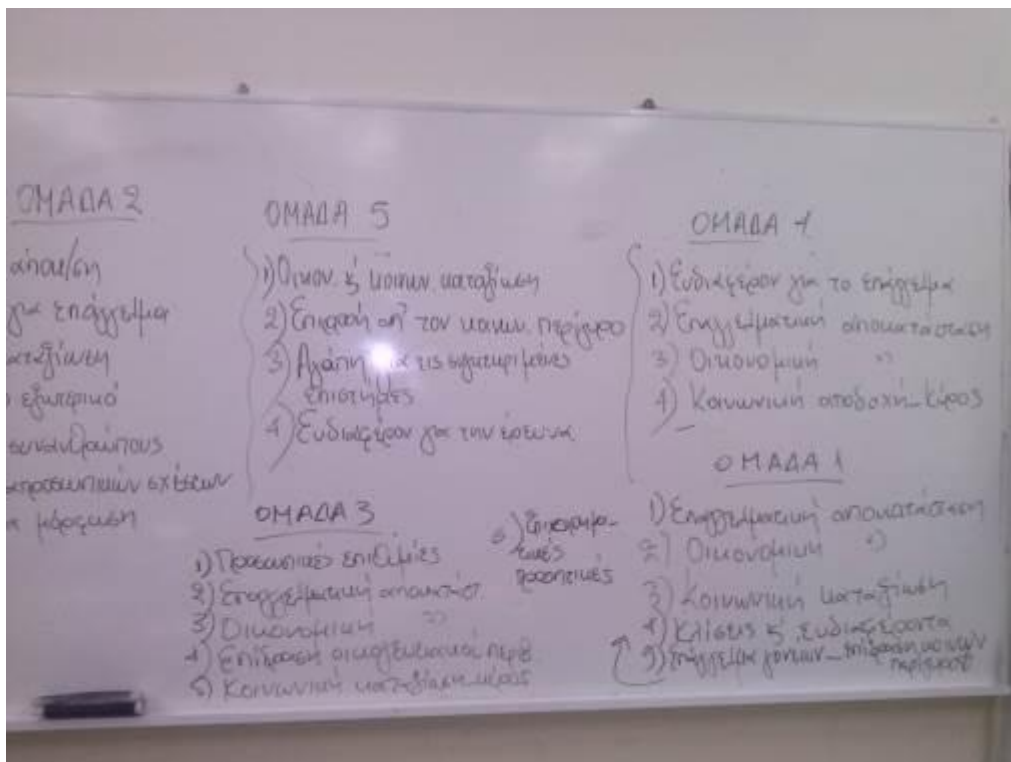 ΟΜΑΔΑ 2
αποκ/ση
για επάγγελμα
καταξίωση
εξωτερικό
συνανθρώπους
διαπροσωπικών σχέσεων
μόρφωση
ΟΜΑΔΑ 5
1) Οικον. & κοινων. καταξίωση
2) Επιρροή απ' τον κοινων. περίγυρο
3) Αγάπη για τις συγκεκριμένες
επιστήμες
4) Ευδιαφέρον για την έρευνα
ΟΜΑΔΑ 3
1) Προσωπικές επιθυμίες
2) Επαγγελματική αποκατάστ.
3) Οικονομική »
4) Επίδραση οικογενειακού περιβ.
5) Κοινωνική καταξίωση κύρος
6)
προοπτικές
ΟΜΑΔΑ 4
1) Ενδιαφέρον για το επάγγελμα
2) Επαγγελματική αποκατάσταση
3) Οικονομική »
4) Κοινωνική αποδοχή_κύρος
ΟΜΑΔΑ 1
1) Επαγγελματική αποκατάσταση
2) Οικονομική »
3) Κοινωνική καταξίωση
4) Κλίσεις & ενδιαφέροντα
5) Επάγγελμα γονέων_επίδραση κοινων